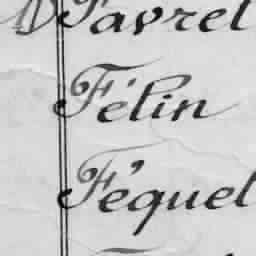 Favrel
Félin
Féquel